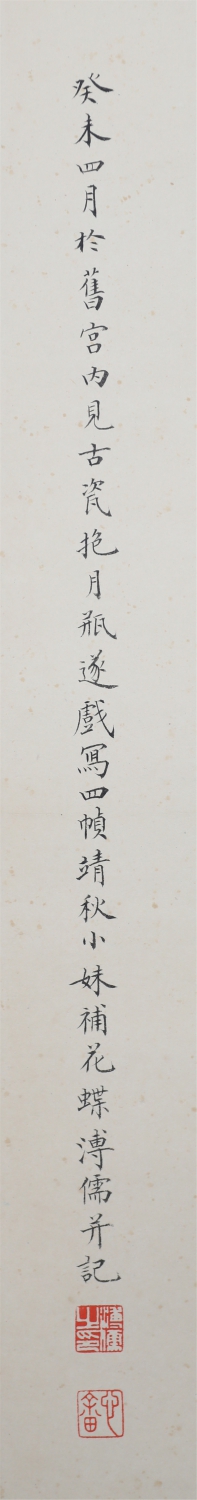 癸未四月於舊宮内見古瓷抱月瓶遂戲寫四幀靖秋小妹補花蝶溥儒并記
溥儒之印
心畬